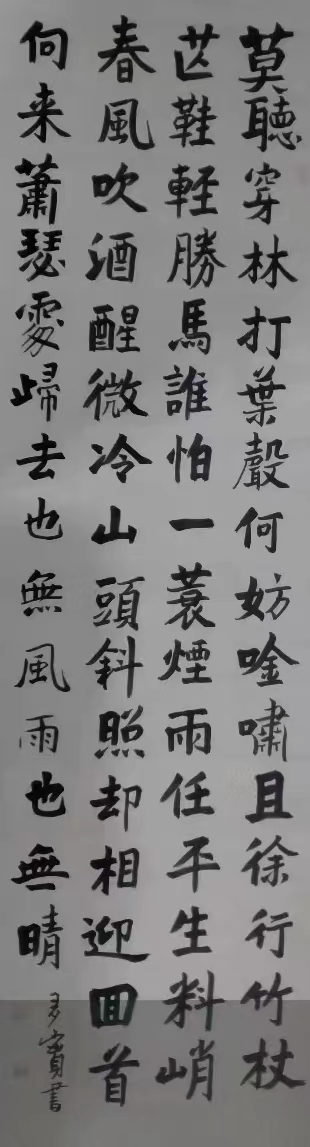 莫聽穿林打葉聲何妨唫嘯且徐行竹杖
芒鞋輕勝馬誰怕一蓑煙雨任平生料峭
春風吹酒醒微冷山頭斜照却相迎回首
向来蕭瑟處歸去也無風雨也無晴
賓書